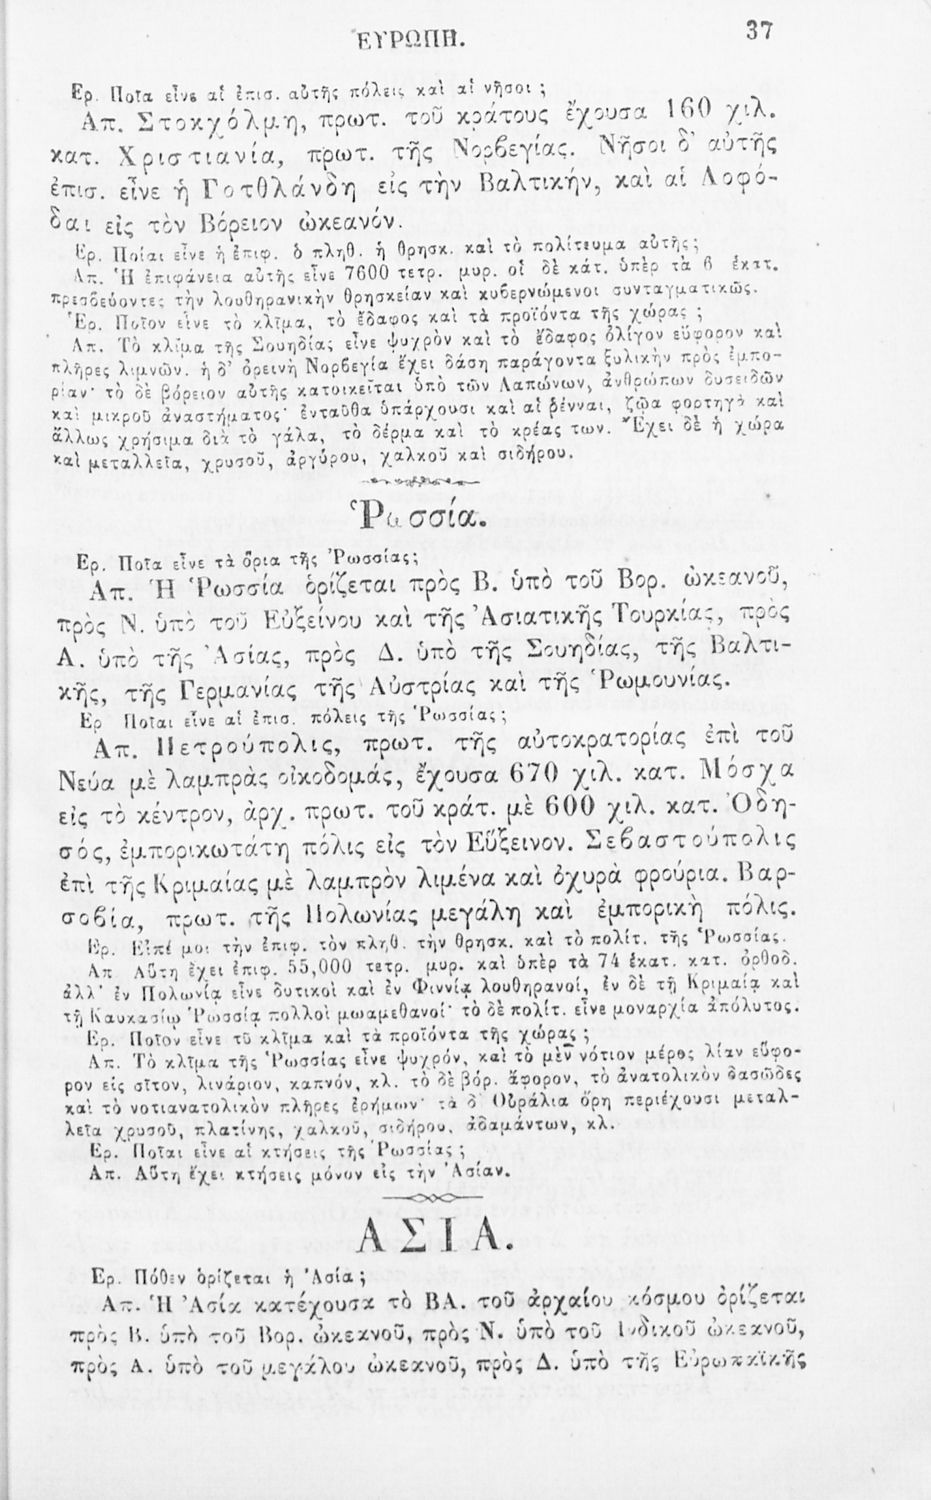 ΕΥΡΩΠΗ. 37
Ερ. Ποῖα εἶνε αἱ ἐπισ. αὐτῆς πόλεις καὶ αἱ νῆσοι ;
Απ. Στοκχόλμη, πρωτ. τοῦ κράτους ἔχουσα 160 χιλ.
κατ. Χριστιανία, πρωτ. τῆς Νορβεγίας. Νῆσοι δ' αὐτῆς
ἐπισ. εἶνε ἡ Γοτθλάνδη εἰς τὴν Βαλτικήν, καὶ αἱ Λοφό-
δαι εἰς τὸν Βόρειον ὠκεανόν.
Ερ. Ποίαι εἶνε ἡ ἐπιφ. ὁ πληθ. ἡ θρησκ. καὶ τὸ πολίτευμα αὐτῆς;
Απ. Ἡ ἐπιφάνεια αὐτῆς εἶνε 7600 τετρ. μυρ. οἱ δὲ κάτ. ὑπὲρ τὰ 6 ἑκατ.
πρεσβεύοντες τὴν λουθηρανικὴν θρησκείαν καὶ κυβερνώμενοι συνταγματικῶς.
Ἐρ. Ποῖον εἶνε τὸ κλῖμα, τὸ ἔδαφος καὶ τὰ προϊόντα τῆς χώρας ;
Απ. Τὸ κλῖμα τῆς Σουηδίας εἶνε ψυχρὸν καὶ τὸ ἔδαφος ὀλίγον εὔφορον καὶ
πλῆρες λιμνῶν. ἡ δ' ὀρεινὴ Νορβεγία ἔχει δάση παράγοντα ξυλικὴν πρὸς ἐμπο-
ρίαν· τὸ δὲ βόρειον αὐτῆς κατοικεῖται ὑπὸ τῶν Λαπώνων, ἀνθρώπων δυσειδῶν
καὶ μικροῦ ἀναστήματος· ἐνταῦθα ὑπάρχουσι καὶ αἱ ῥένναι, ζῷα φορτηγὰ καὶ
ἄλλως χρήσιμα διὰ τὸ γάλα, τὸ δέρμα καὶ τὸ κρέας των. Ἔχει δὲ ἡ χώρα
καὶ μεταλλεῖα, χρυσοῦ, ἀργύρου, χαλκοῦ καὶ σιδήρου.
Ῥωσσία.
Ερ. Ποῖα εἶνε τὰ ὅρια τῆς Ῥωσσίας;
Απ. Ἡ Ῥωσσία ὁρίζεται πρὸς Β. ὑπὸ τοῦ Βορ. ὠκεανοῦ,
πρὸς Ν. ὑπὸ τοῦ Εὐξείνου καὶ τῆς Ἀσιατικῆς Τουρκίας, πρὸς
Α. ὑπὸ τῆς Ἀσίας, πρὸς Δ. ὑπὸ τῆς Σουηδίας, τῆς Βαλτι-
κῆς, τῆς Γερμανίας τῆς Αὐστρίας καὶ τῆς Ῥωμουνίας.
Ερ Ποῖαι εἶνε αἱ ἐπισ. πόλεις τῆς Ῥωσσίας;
Απ. Πετρούπολις, πρωτ. τῆς αὐτοκρατορίας ἐπὶ τοῦ
Νεύα μὲ λαμπρὰς οἰκοδομάς, ἔχουσα 670 χιλ. κατ. Μόσχα
εἰς τὸ κέντρον, ἀρχ. πρωτ. τοῦ κράτ. μὲ 600 χιλ. κατ. Ὀδη-
σός, ἐμπορικωτάτη πόλις εἰς τὸν Εὔξεινον. Σεβαστούπολις
ἐπὶ τῆς Κριμαίας μὲ λαμπρὸν λιμένα καὶ ὀχυρὰ φρούρια. Βαρ-
σοβία, πρωτ. τῆς Πολωνίας μεγάλη καὶ ἐμπορικὴ πόλις.
Ερ. Εἰπέ μοι τὴν ἐπιφ. τὸν πληθ. τὴν θρησκ. καὶ τὸ πολίτ. τῆς Ῥωσσίας.
Απ Αὕτη ἔχει ἐπιφ. 55,000 τετρ. μυρ. καὶ ὑπὲρ τὰ 74 ἑκατ. κατ. ὀρθοδ.
ἀλλ' ἐν Πολωνίᾳ εἶνε δυτικοὶ καὶ ἐν Φιννίᾳ λουθηρανοί, ἐν δὲ τῇ Κριμαίᾳ καὶ
τῇ Καυκασίῳ Ῥωσσίᾳ πολλοὶ μωαμεθανοί· τὸ δὲ πολίτ. εἶνε μοναρχία ἀπόλυτος.
Ερ. Ποῖον εἶνε τὸ κλῖμα καὶ τὰ προϊόντα τῆς χώρας ;
Απ. Τὸ κλῖμα τῆς Ῥωσσίας εἶνε ψυχρόν, καὶ τὸ μὲν νότιον μέρος λίαν εὔφο-
ρον εἰς σῖτον, λινάριον, καπνόν, κλ. τὸ δὲ βόρ. ἄφορον, τὸ ἀνατολικὸν δασῶδες
καὶ τὸ νοτιανατολικὸν πλῆρες ἐρήμων· τὰ δ' Οὐράλια ὄρη περιέχουσι μεταλ-
λεῖα χρυσοῦ, πλατίνης, χαλκοῦ, σιδήρου, ἀδαμάντων, κλ.
Ερ. Ποῖαι εἶνε αἱ κτήσεις τῆς Ῥωσσίας ;
Απ. Αὕτη ἔχει κτήσεις μόνον εἰς τὴν Ἀσίαν.
ΑΣΙΑ.
Ερ. Πόθεν ὁρίζεται ἡ Ἀσία ;
Απ. Ἡ Ἀσία κατέχουσα τὸ ΒΑ. τοῦ ἀρχαίου κόσμου ὁρίζεται
πρὸς Β. ὑπὸ τοῦ Βορ. ὠκεανοῦ, πρὸς Ν. ὑπὸ τοῦ Ινδικοῦ ὠκεανοῦ,
πρὸς Α. ὑπὸ τοῦ μεγάλου ὠκεανοῦ, πρὸς Δ. ὑπὸ τῆς Εὐρωπαϊκῆς